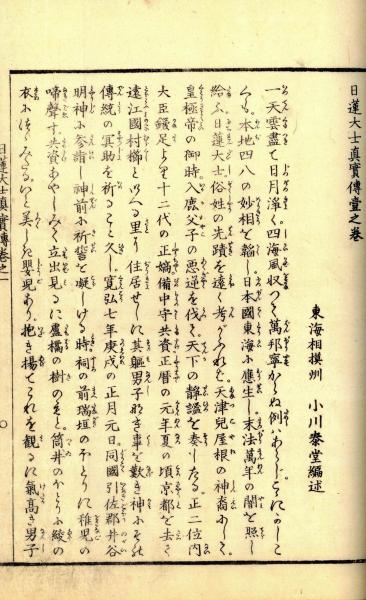 日蓮大士真實傳壹之巻
東海相摸州 小川泰堂編述
一天雲盡て日月淨く四海風収つて萬邦寧からぬ例ハあらじとにかしこ
くも本地四八の妙相を韜し日本國東海に應生し末法萬年の闇を照し
給ふ日蓮大士俗姓の先蹟を遠く考がふれバ天津兒屋根の神裔にして
皇極帝の御時入鹿父子の悪逆を伐て天下の静謐を奏したる正二位内
大臣鎌足より十二代の正嫡備中守共資正暦の元年夏の頃京都を去て
遠江國村櫛といへる里に住居せしに其躯男子なき事を歎き神に祈
傳統の冥助を祈ること久し寛弘七年庚戌の正月元日同國引佐郡井谷
明神に参詣し神前に祈誓を凝しける時祠の前瑞垣のほとりに稚児の
啼聲す共資あやしみて立出見るに蘆橘の樹のもと筒井のほとりに綾の
衣につゝみたるいと美しき嬰児あり抱き揚てこれを観るに氣高き男子
日蓮大士真實傳巻之一